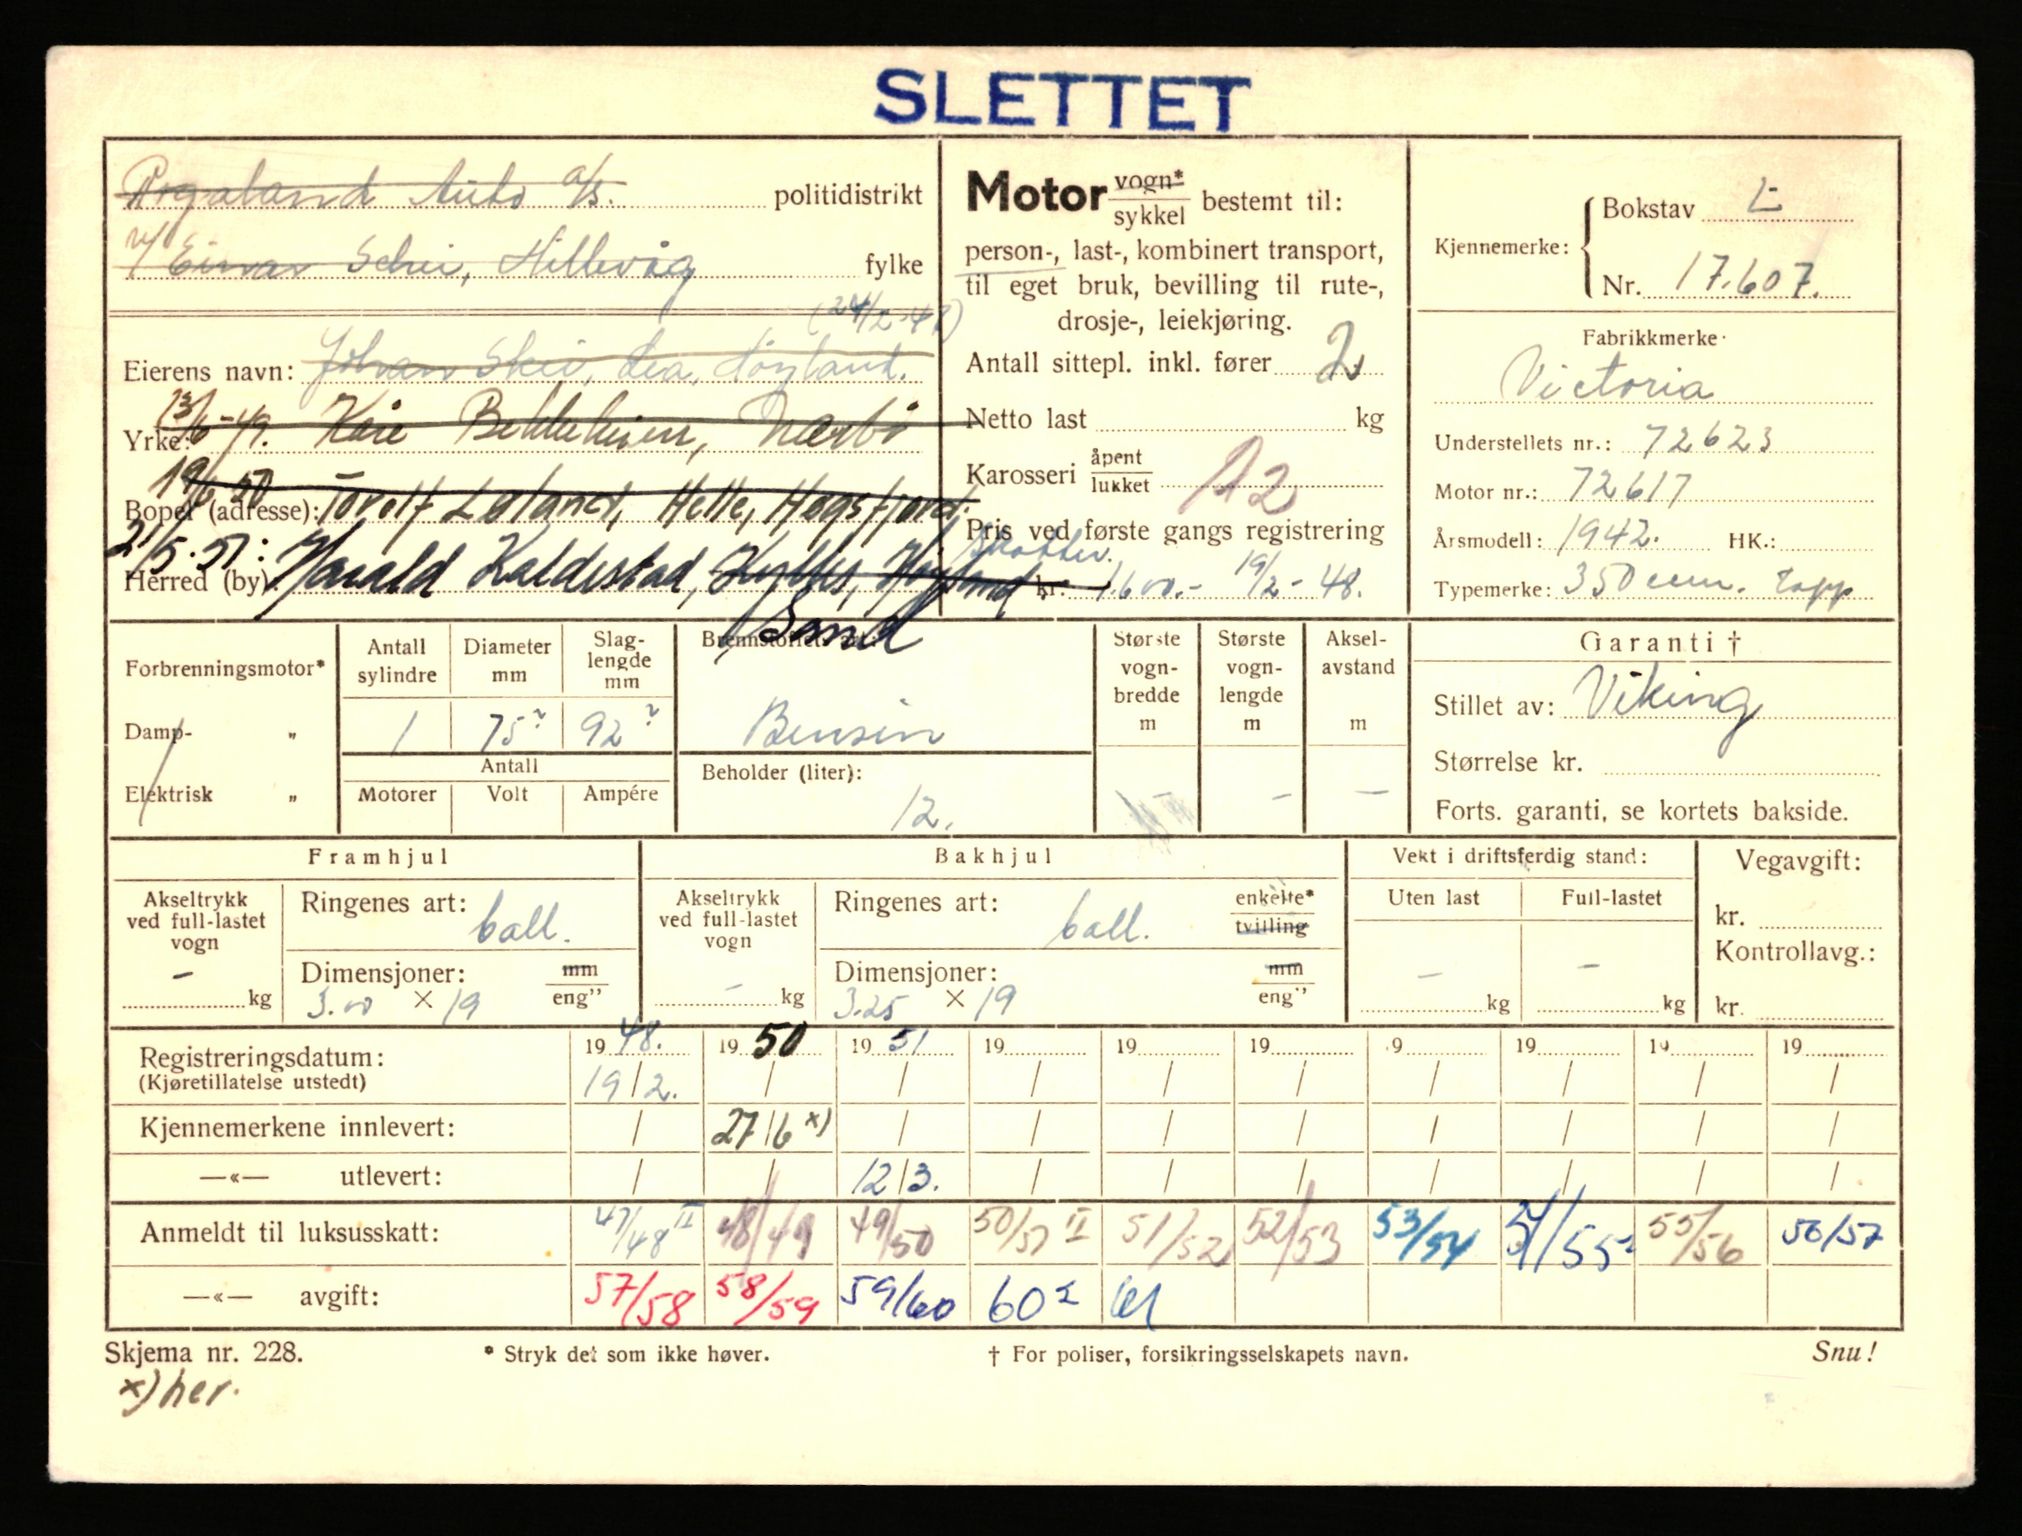 SLETTET
Rogaland Auto a/s. politidistrikt
v/ Einar Schei, Hillevåg fylke
Eierens navn: Johan Skei, Lea, Høyland.
Yrke: 13/6-49. Kåre Bekkeheien, Nærbø
Bopel (adresse): 19/6 50 Torolf Løland, Helle, Høgsfjord.
21/5.51: Harald Kaldestad, Høyland
Herred (by)
Sand
Motor vogn*
sykkel bestemt til:
person-, last-, kombinert transport,
til eget bruk, bevilling til rute-,
drosje-, leiekjøring.
Antall sittepl. inkl. fører 2
Netto last kg
Karosseri åpent
lukket A2
Pris ved første gangs registrering
kr. 1.600.- 19/2-48.
Kjennemerke: Bokstav L
Nr. 17.607.
Fabrikkmerke
Victoria
Understellets nr.: 72623
Motor nr.: 72617
Årsmodell: 1942. HK.:
Typemerke: 350 ccm. topp
Forbrenningsmotor*
Damp- "
Elektrisk "
Antall sylindre Diameter mm Slag-lengde mm
1 75² 92²
Antall
Motorer Volt Ampére
Brennstoffets art:
Bensin
Beholder (liter):
12.
Største vogn-bredde m
Største vogn-lengde m
Aksel-avstand m
— —
Garanti †
Stillet av: Viking
Størrelse kr.
Forts. garanti, se kortets bakside.
Framhjul
Akseltrykk ved full-lastet vogn
— kg
Ringenes art: ball.
Dimensjoner: mm
3.00 × 19 eng"
Bakhjul
Akseltrykk ved full-lastet vogn
— kg
Ringenes art: ball. enkelte*
tvilling
Dimensjoner: mm
3.25 × 19 eng"
Vekt i driftsferdig stand:
Uten last Full-lastet
— kg — kg
Vegavgift:
kr.
Kontrollavg.:
kr.
Registreringsdatum: 19 48. 19 50 19 51 19 19 19 19 19 19 19
(Kjøretillatelse utstedt) 19/2. / / / / / / / / /
Kjennemerkene innlevert: / 27/6 x) / / / / / / / /
—«— utlevert: / / 12/3. / / / / / / /
Anmeldt til luksusskatt: 47/48 II 48/49 49/50 50/51 II 51/52 52/53 53/54 54/55 55/56 56/57
—«— avgift: 57/58 58/59 59/60 60² 61
Skjema nr. 228. * Stryk det som ikke høver. † For poliser, forsikringsselskapets navn. Snu!
x) her.